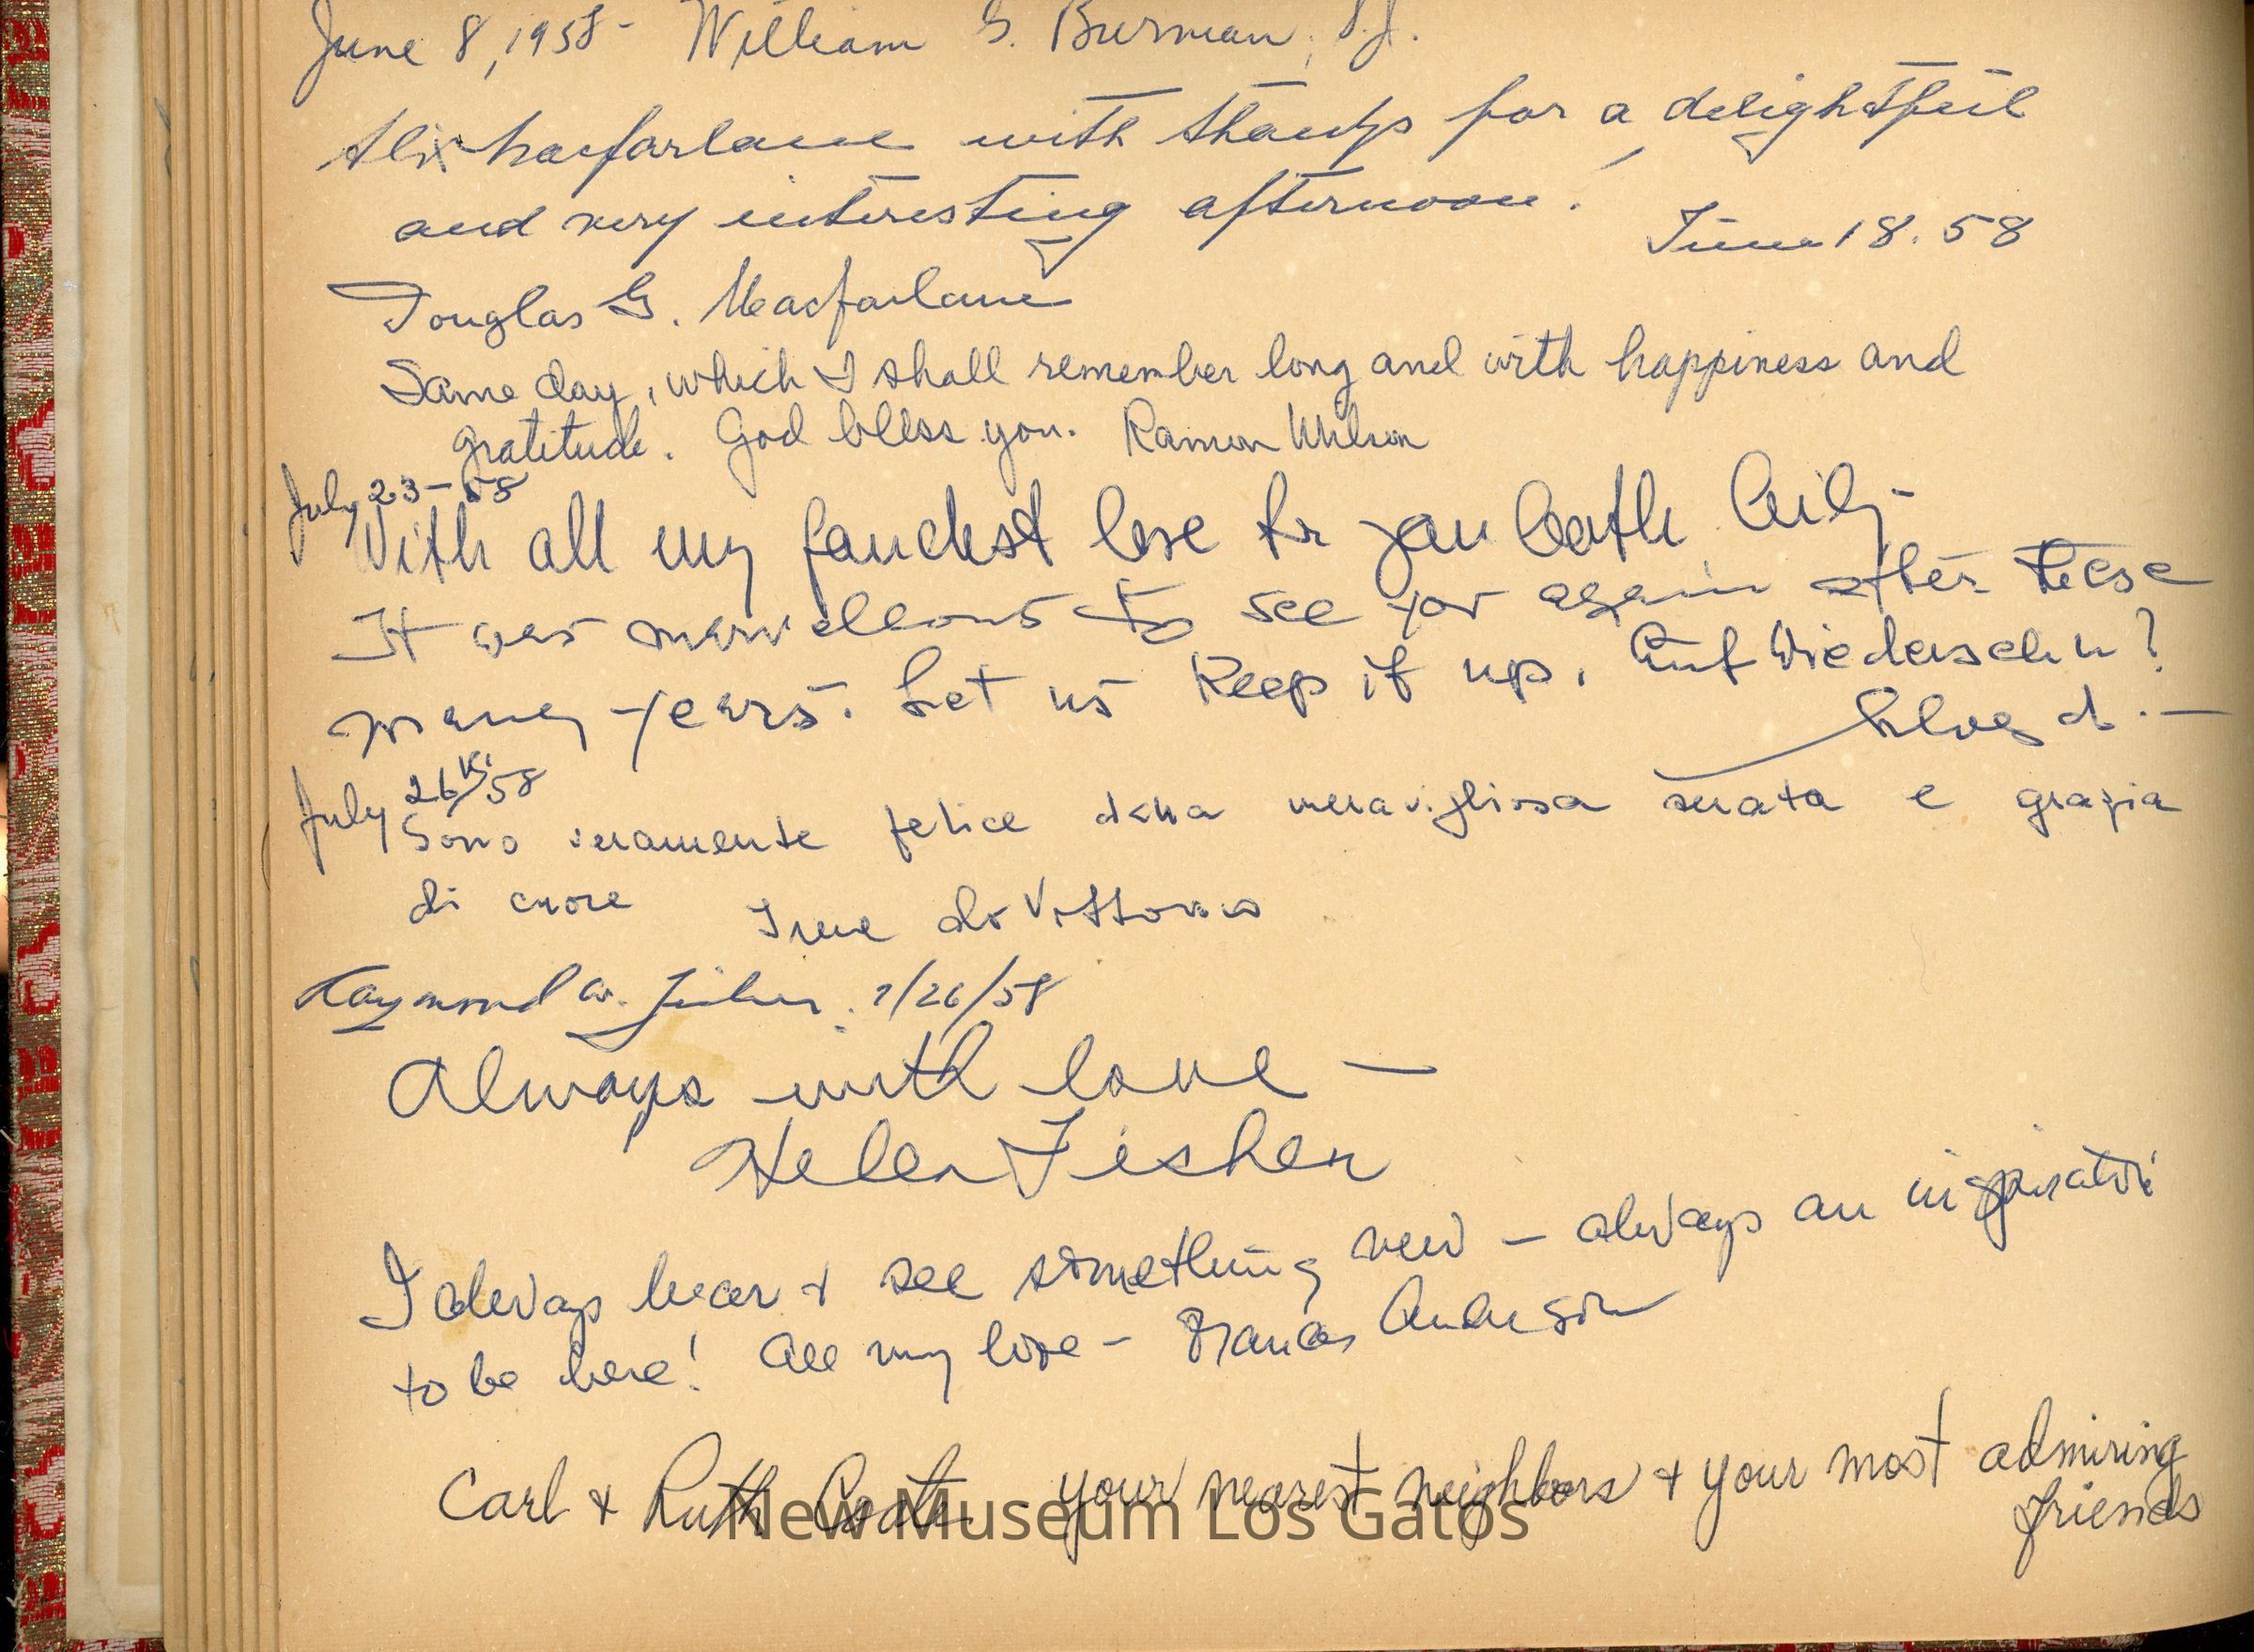 June 8, 1958 - William G. Burman, S.J.
Alix Macfarlane with thanks for a delightful
and very interesting afternoon.
June 18. 58
Douglas G. Macfarlane
Same day, which I shall remember long and with happiness and
gratitude. God bless you. Ramon Wilson
July 23-58
With all my fondest love to you both
It was marvellous to see you again after these
many years. Let us keep it up. Auf Wiedersehn?
July 26/58
Sono veramente felice della meravigliosa serata e grazia
di cuore Irene
Raymond W. Fisher. 7/26/58
Always with love —
Helen Fisher
I always hear + see something new - always an inspiration
to be here! All my love - Frances Anderson
Carl + Ruth your nearest neighbors + your most admiring
friends
New Museum Los Gatos